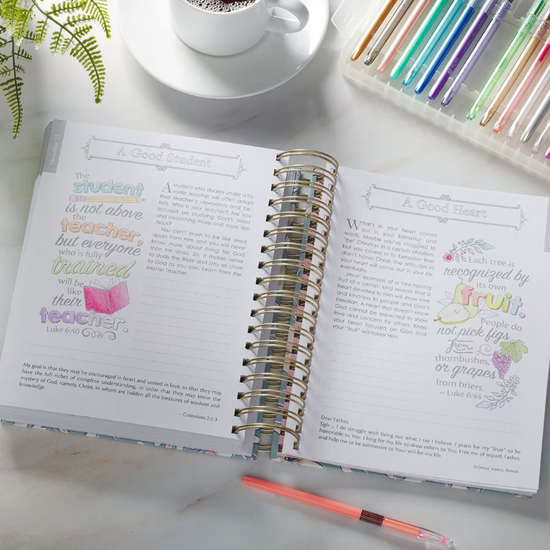 A Good Student
The
student
is not above
the
teacher,
but everyone
who is fully
trained
will be
like
their
teacher.
Luke 6:40
A student who studies under a fa-
vorite teacher will often adopt
that teacher's viewpoints and be-
liefs. Who is your teacher? Are you
focused on studying God's Word
and becoming more and more like
Jesus?
You can't learn to be like Jesus
apart from Him and you will never
know more about living for God
than He does. So, it makes sense
to study the Bible and stay as close
to God as you can. Learn from the
Master teacher.
My goal is that they may be encouraged in heart and united in love, so that they may
have the full riches of complete understanding, in order that they may know the
mystery of God, namely, Christ, in whom are hidden all the treasures of wisdom and
knowledge.
~ Colossians 2:2-3
A Good Heart
What's in your heart comes
out in your behavior and
words. Maybe you've managed to
"be" Christian in a certain situation,
but you caved in to behavior that
didn't honor Christ. What's inside
your heart will come out in your life
eventually.
Your example of a tree having
fruit of a certain kind means that a
heart devoted to Him will show love
and kindness to people and to His
creation. A heart that doesn't know
God cannot be expected to show
love and concern for others. Keep
your heart focused on God and
your "fruit" will honor Him.
Each tree is
recognized by
its own
fruit.
People do
not pick figs
from
thornbushes,
or grapes
from briers.
~ Luke 6:44
Dear Father,
Sigh ... I do struggle with living out what I say I believe. I yearn for my "fruit" to be
honorable to You. I long for my life to draw others to You. Free me of myself, Father,
and help me to be submissive to Your will for my life.
In Jesus' name, Amen.